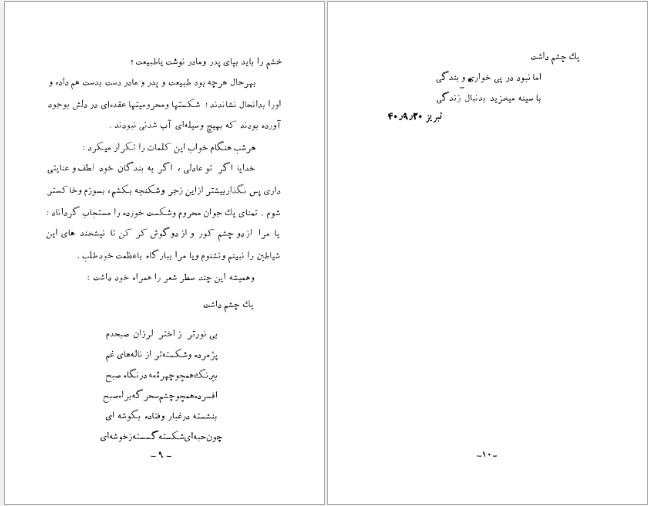 خشم را باید بپای پدر ومادر نوشت یاطبیعت ؛
بهرحال هرچه بود طبیعت و پدر و مادر دست بدست هم داده و
اورا بدانحال نشاندند ؛ شکستها ومحرومیتها عقده‌ای در دلش بوجود
آورده بودند که بهیچ وسیله‌ای آب شدنی نبودند .
هرشب هنگام خواب این کلمات را تکرار میکرد :
خدایا اگر تو عادلی ، اگر به بندگان خود لطف و عنایتی
داری پس نگذاربیشتر ازاین زجر وشکنجه بکشم ، بسوزم وخاکستر
شوم . تمنای یك جوان محروم وشکست خورده را مستجاب گردانان :
یا مرا ازدو چشم کور و از دوگوش کر کن تا نیشخند های این
شیاطین را نبینم ونشنوم ویا مرا ببارگاه باعظمت خودطلب .
وهمیشه این چند سطر شعر را همراه خود داشت :
یك چشم داشت
بی نورتر ز اختر لرزان صبحدم
پژمرده وشکسته‌تر از ناله‌های غم
بیرنك‌همچوچهرهٔ‌مه درنگاه صبح
افسرده‌همچوچشم‌سحرگه‌براه‌صبح
بنشسته درغبار وفتاده بگوشه ای
چون‌حبه‌ای‌شکسته‌گسسته‌زخوشه‌ای
- ۹ -
یك چشم داشت
اما نبود در پی خواری و بندگی
با سینه میخزید بدنبال زندگی
تبریز ۴۰ر۹ر۲۰
-۱۰-